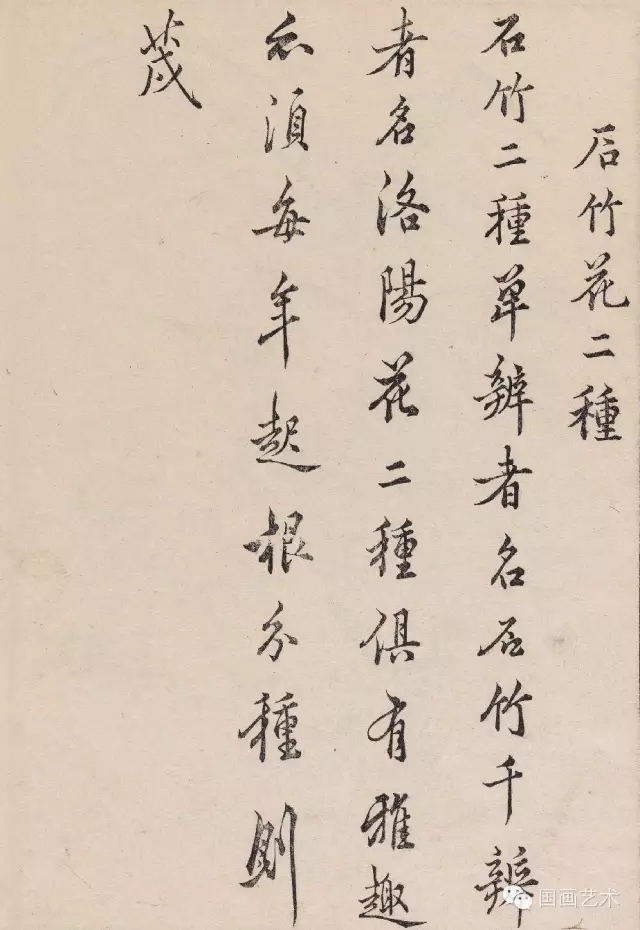 石竹花二種
石竹二種單辧者名石竹千辧
者名洛陽花二種俱有雅趣
亦須每年起根分種則
茂
国画艺术